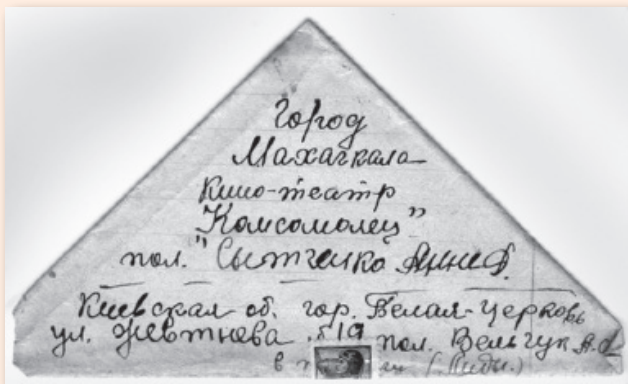 Город
Махачкала
Кино-театр
"Комсомолец"
пол. Сытченко Анне
Киевская об. гор. Белая-Церковь
ул. пол. Вельчук А.
в